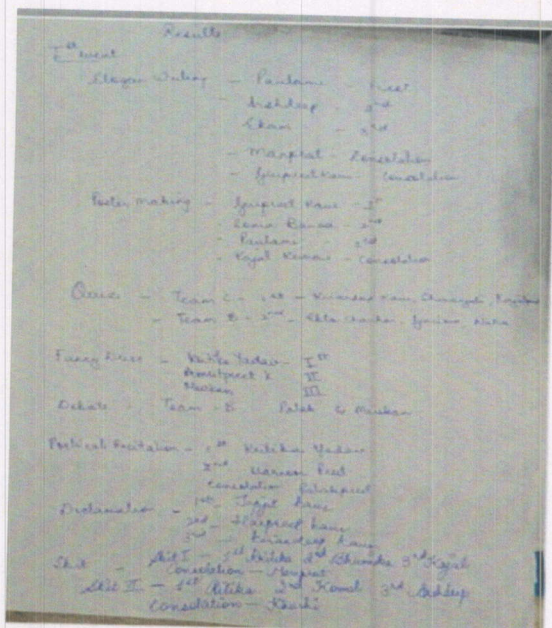 Results
Ist event
Slogan Writing - Paulami - First
- Arshdeep - 2nd
Ekam - 3rd
- Manpreet - Consolation
- Gurpreet Kaur - Consolation
Poster Making - Gurpreet Kaur - Ist
- 2nd
- Paulami - 3rd
- Kajal Kumari - Consolation
- Team C - 1st - Kaur,
- Team B - 2nd -
Fancy Dress - Ritika Yadav - Ist
Amritpreet K II
Muskan III
Debate - Team - B Palak & Muskan
Poetical Recitation - 1st Ritika Yadav
2nd Preet
Consolation
Declamation - 1st - Jagjot Kaur
2nd - Harpreet Kaur
3rd - Kaur
Skit - Skit I - 1st Ritika 2nd Bhumika 3rd Kajal
Consolation - Manpreet
Skit II - 1st Ritika 2nd Komal 3rd Arshdeep
Consolation - Khushi